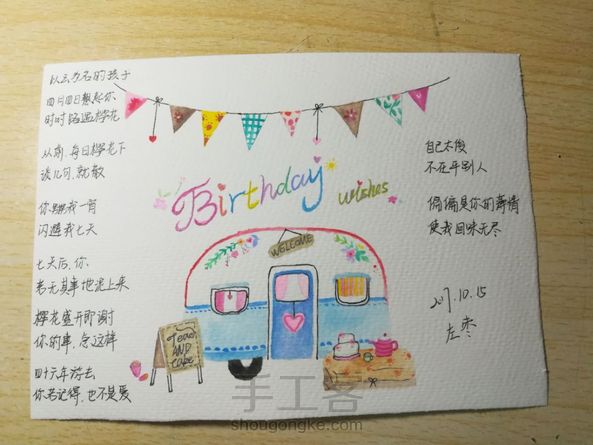 以云为名的孩子
四月四日想起你
时时路遇樱花
从前，每日樱花下
谈几句，就散
你赐我一宵
闪避我七天
七天后，你
若无其事地上来
樱花盛开即谢
你的事，总这样
四十六年去
你若记得，也不是爱
Birthday
wishes
WELCOME
Tea
AND
CAKE
自己太俊
不在乎别人
偏偏是你的薄情
使我回味无尽
2017.10.15
左枣
手工客
shougongke.com